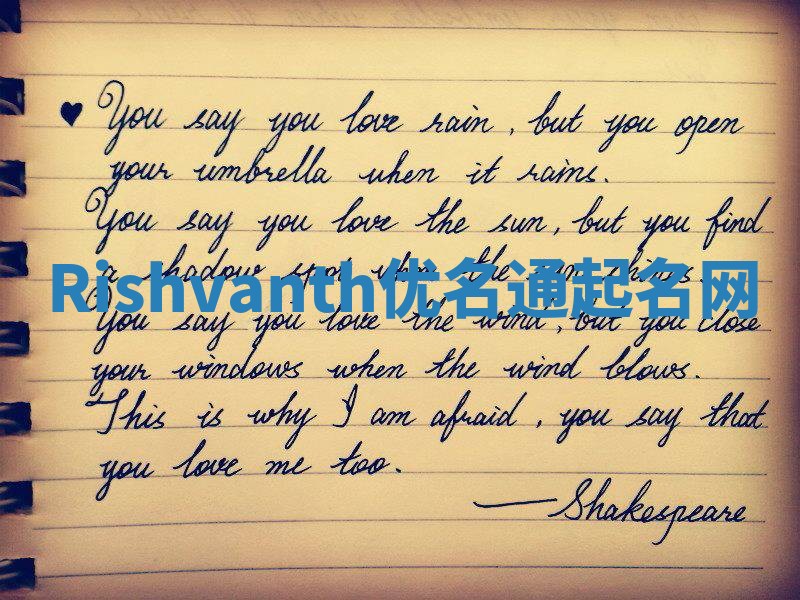 ♥ You say you love rain, but you open
your umbrella when it rains.
You say you love the sun, but you find
a shadow spot when the sun shines.
Rishvanth优名通起名网
You say you love the wind, but you close
your windows when the wind blows.
This is why I am afraid, you say that
you love me too.
—Shakespeare